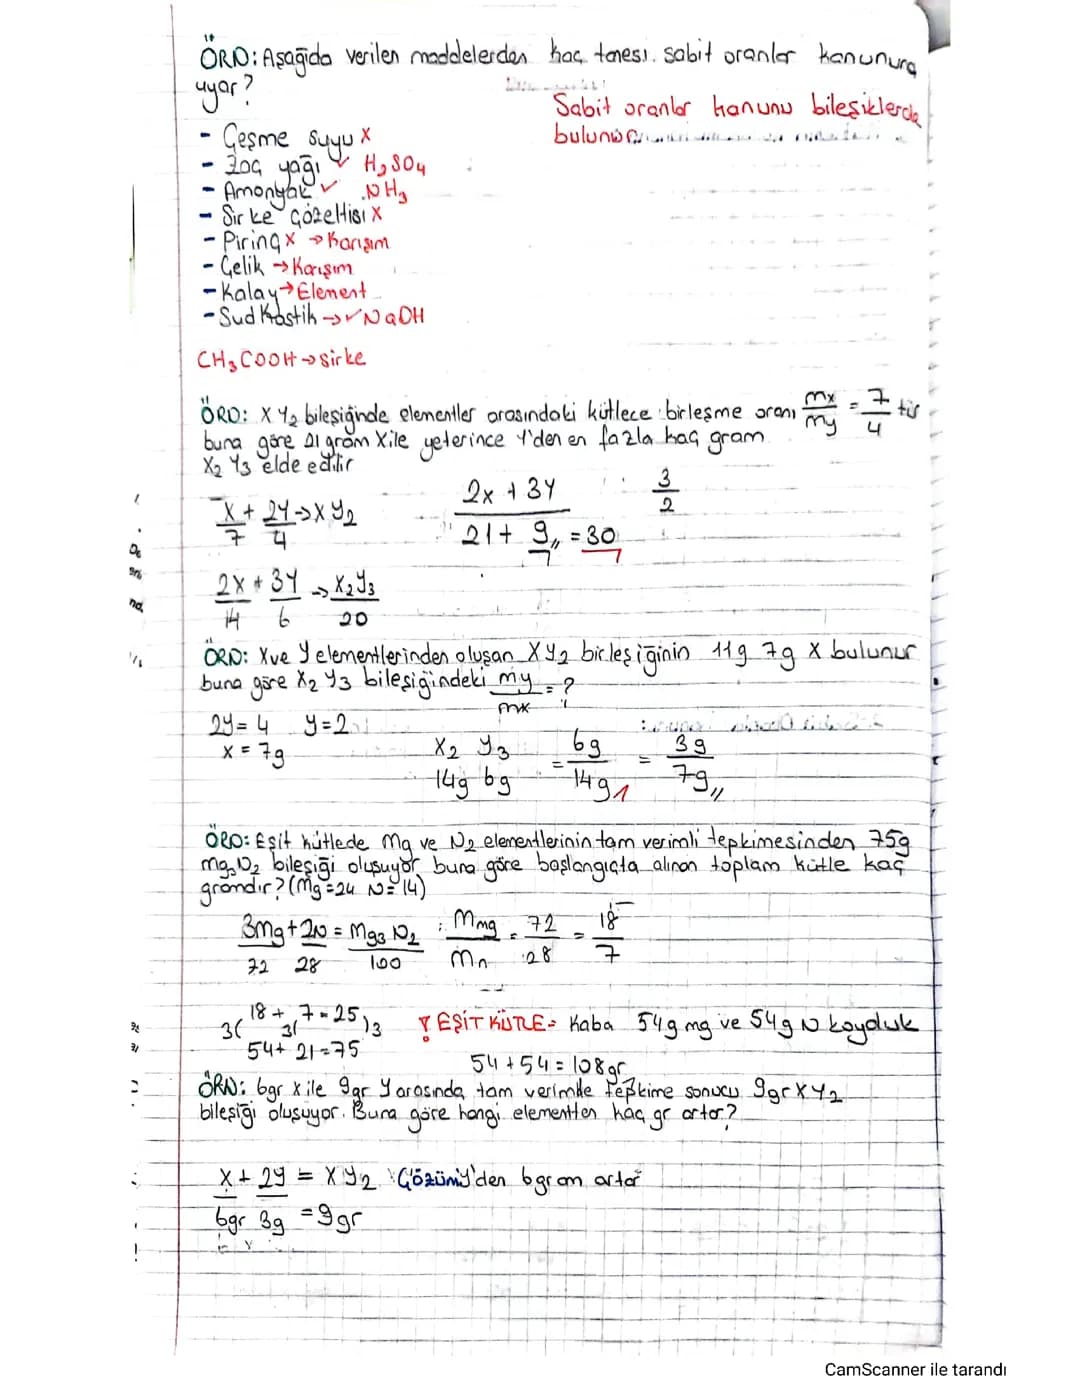 ÖRN: Aşağıda verilen maddelerden kaç tanesi sabit oranlar kanununa
uyar?
Sabit oranlar kanunu bileşiklerde
bulunur
- Çeşme suyu x
- Zaç yağı ✓ H₂SO₄
- Amonyak ✓ NH₃
- Sirke çözeltisi x
- Pirinç x → Karışım
- Çelik → Karışım
- Kalay → Element
- Sud Kostik → ✓ NaOH
CH₃COOH → sirke
ÖRN: XY₂ bileşiğinde elementler arasındaki kütlece birleşme oranı mx/my = 7/4 tür
buna göre 21 gram X ile yeterince Y'den en fazla kaç gram
X₂Y₃ elde edilir
X + 2Y → XY₂
7 4
2x + 3Y
21 + 9,, = 30
3/2
2X + 3Y → X₂Y₃
14 6 20
ÖRN: X ve Y elementlerinden oluşan XY₂ birleşiğinin 11g 7g X bulunur
buna göre X₂Y₃ bileşiğindeki my/mx = ?
2y = 4 y = 2
x = 7g
X₂ Y₃ = 6g/14g = 3g/7g,,
14g 6g
ÖRN: Eşit kütlede Mg ve N₂ elementlerinin tam verimli tepkimesinden 75g
Mg₃N₂ bileşiği oluşuyor buna göre başlangıçta alınan toplam kütle kaç
gramdır? (Mg=24 N=14)
3Mg + 2N = Mg₃N₂ : Mmg/Mn = 72/28 = 18/7
72 28 100
18 + 7 = 25
3( 3( )3
54 + 21 = 75
! EŞİT KÜTLE = Kaba 54g mg ve 54g N koyduk
54 + 54 = 108gr
ÖRN: 6gr X ile 9gr Y arasında tam verimle tepkime sonucu 9gr XY₂
bileşiği oluşuyor. Buna göre hangi elementten kaç gr artar?
X + 2y = XY₂ Çözüm: y'den 6 gram artar
6gr 3g = 9gr
CamScanner ile tarandı